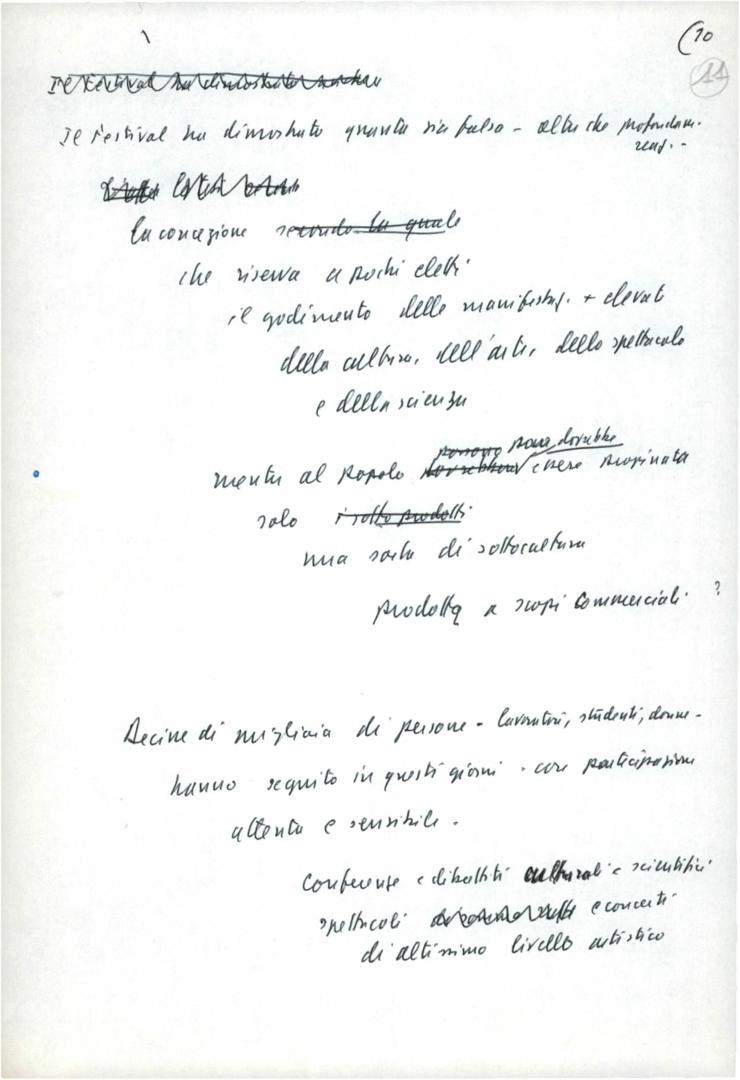 (10
11
Il Festival ha dimostrato anche
Il Festival ha dimostrato quanto sia falsa - oltre che profondam.
reaz. -
la concezione secondo la quale
che riserva a pochi eletti
il godimento delle manifestaz. + elevate
della cultura, dell'arte, dello spettacolo
e della scienza
possono possa dovrebbe
mentre al popolo dovrebbero essere propinata
solo i sottoprodotti
una sorta di sottocultura
prodotta a scopi commerciali ?
Decine di migliaia di persone - lavoratori, studenti, donne -
hanno seguito in questi giorni - con partecipazione
attenta e sensibile -
conferenze e dibattiti culturali e scientifici
spettacoli e concerti
di altissimo livello artistico